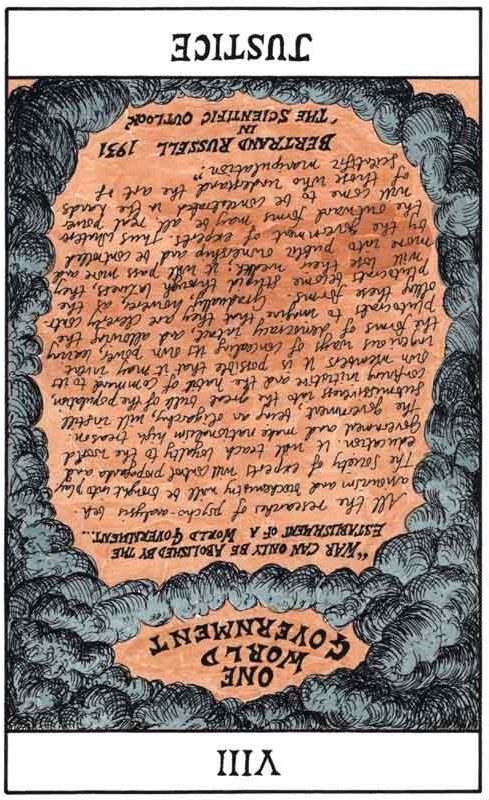 VIII
ONE
WORLD
GOVERNMENT
“WAR CAN ONLY BE ABOLISHED BY THE
ESTABLISHMENT OF A WORLD GOVERNMENT...
All the researches of psycho-analysis beh
aviourism and biochemistry will be brought into play.
The society of experts will control propaganda and
education. It will teach loyalty to the world
government and make nationalism high treason
The government, being an oligarchy, will instill
submissiveness into the great bulk of the population
confining initiative and the habit of command to its
own members. It is possible that it may invent
ingenious ways of concealing its own power, leaving
the forms of democracy intact, and allowing the
plutocrats to imagine that they are cleverly contr-
olling these forms. Gradually, however, as the
plutocrats become stupid through laziness, they
will lose their wealth; it will pass more and
more into public ownership and be controlled
by the government of experts. Thus whatever
the outward forms may be all real power
will come to be concentrated in the hands
of those who understand the art of
scientific manipulation.”
BERTRAND RUSSELL 1931
IN
'THE SCIENTIFIC OUTLOOK'
JUSTICE